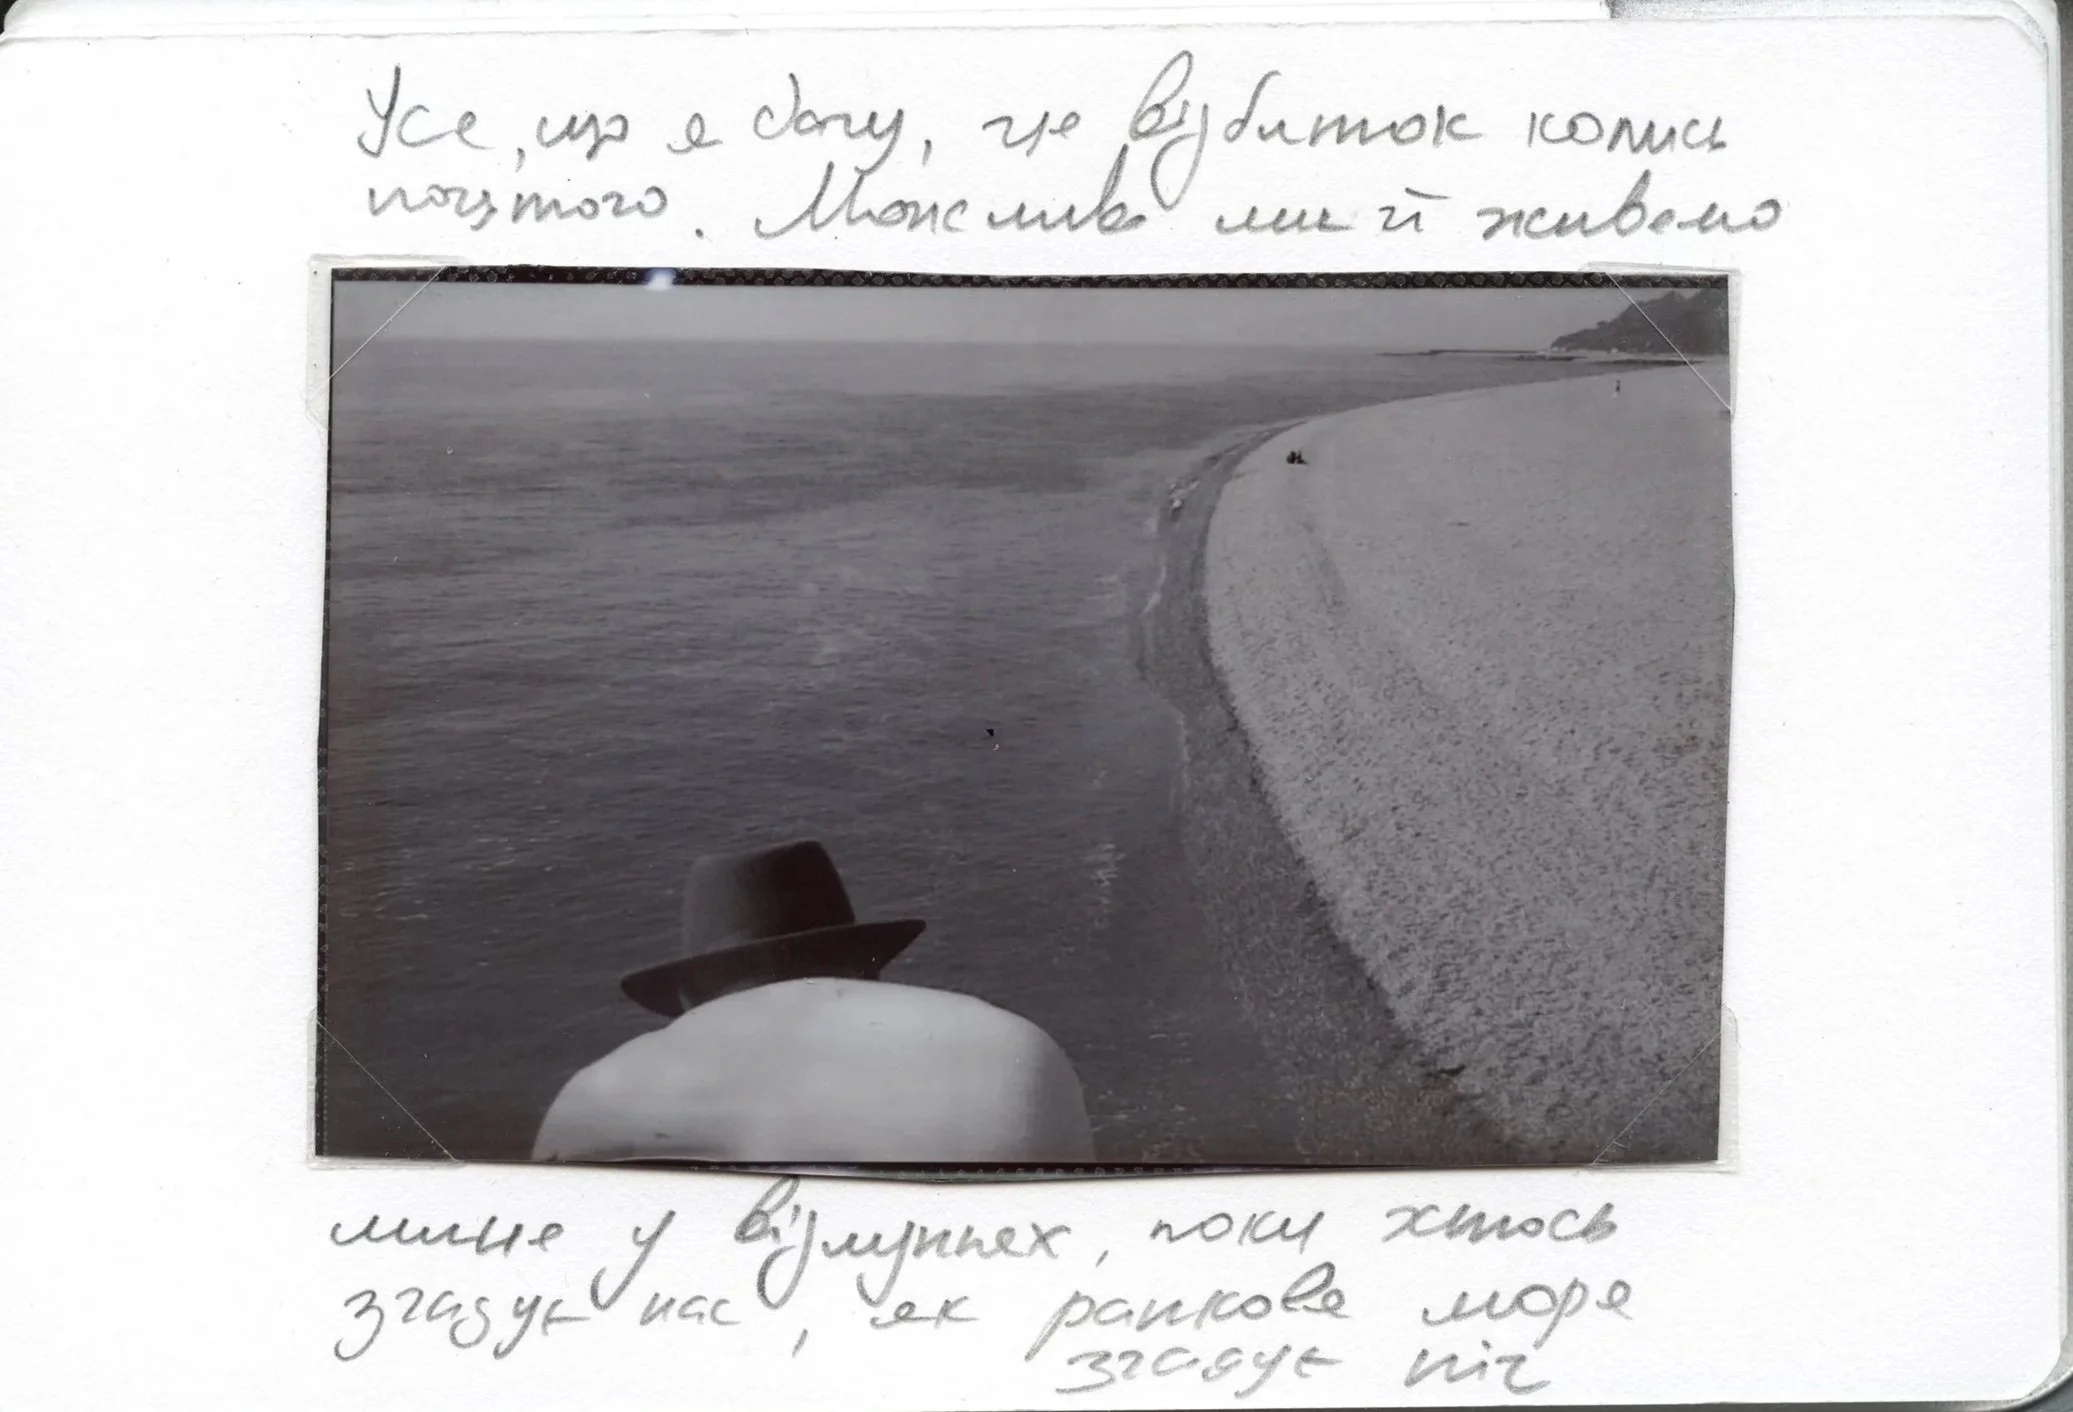 Усе, що я бачу, це відбиток колись
початого. Можливо ми й живемо
лише у відлуннях, поки хтось
згадує нас, як ранкове море
згадує ніч